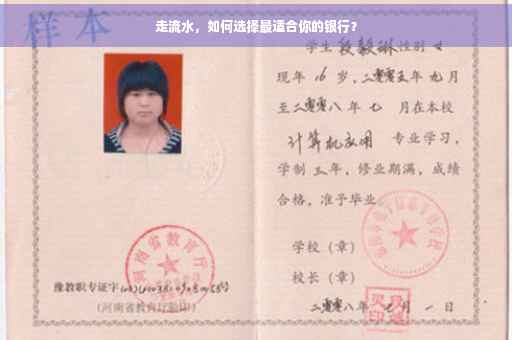 走流水，如何选择最适合你的银行？
样本
学生段毅琳性别女
现年16岁，二零零五年九月
至二零零八年七月在本校
计算机应用专业学习，
学制三年，修业期满，成绩
合格，准予毕业。
学校（章）
校长（章）
二零零八年七月一日
河南省教育厅
豫教职专证字
（河南省教育厅验印）